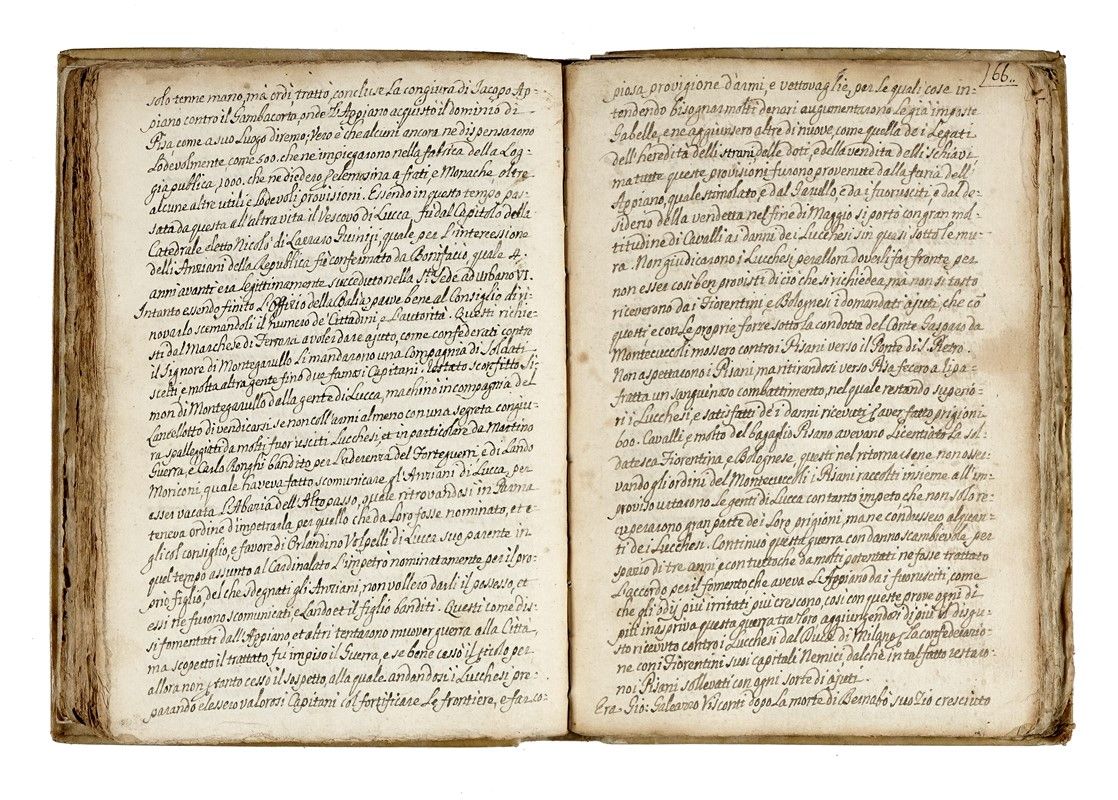 solo tenne mano, ma ordì, trattò, concluse La congiura di Jacopo Ap=
piano contro il Gambacorta, onde l'Appiano acquistò il dominio di
Pisa come a suo Luogo diremo; Vero è che alcuni ancora ne dispensarono
Lodevolmente come 500. che ne impiegarono nella fabrica della Log=
gia publica, 1000. che ne diedero p elemosina a frati, e Monache, oltre
alcune altre utili e Lodevoli provisioni. Essendo in questo tempo pas=
sata da questa all'altra vita il Vescovo di Lucca, fù dal Capitolo della
Cattedrale eletto Nicolò di Lazzaro Guinigi, quale per L'intercessione
delli Anziani della Republica fù confermato da Bonifacio, quale 4.
anni avanti era legittimamente succeduto nella Sta. Sede ad urbano VI.
Intanto essendo finito L'Offizio della Balia, parve bene al Consiglio di ri=
novarlo scemandoli il numero de' Cittadini, e L'autorità. Questi richie=
sti dal Marchese di Ferrara a voler dare ajuto, come confederati contro
il Signore di Montegarullo Li mandarono una Compagnia di Soldati
scelti, e molta altra gente fino dua famosi Capitani. restato sconfitto Si=
mon di Montegarullo dalla gente di Lucca, machinò in compagnia del
Lancelotto di vendicarsi se non coll'armi almeno con una segreta congiu=
ra spalleggiati da molti fuorusciti Lucchesi, et in particolare da Martino
Guerra, e Carlo Ronghi bandito per L'aderenza del Forteguerri, e di Lando
Moriconi, quale haveva fatto scomunicare gl'Anziani di Lucca, per
esser vacata L'Abazia dell'Altopasso, quale ritrovandosi in Parma
teneva ordine d'impetrarla per quello che da Loro fosse nominato, et e=
gli col consiglio, e favore di Orlandino Volpelli di Lucca suo parente in
quel tempo assunto al Cardinalato L'impetrò nominatamente per il pro=
prio figlio, del che sdegnati gli Anziani, non vollero darli il possesso, et
essi ne furono scomunicati, e Lando et il figlio banditi. Questi come dis=
si fomentati dall'Appiano et altri tentarono muover guerra alla Città,
ma scoperto il trattato, fu impiso il Guerra, e se bene cessò il pericolo per
allora non p tanto cessò il sospetto, alla quale andandosi i Lucchesi pre=
parando elessero valorosi Capitani col fortificare Le frontiere, e far co=
166.
piosa provigione d'armi, e vettovaglie, per le quali cose in=
tendendo bisognar molti denari augumentarono le già imposte
Gabelle, e ne aggiunsero altre di nuove, come quella de i Legati
dell'heredità delli strani, delle doti, e della vendita delli Schiavi,
ma tutte queste provisioni furono provenute dalla furia dell'
Appiano, quale stimolato, e dal Garullo, e da i fuorusciti, e dal de=
siderio della vendetta nel fine di Maggio si portò con gran mol=
titudine di Cavalli ai danni de i Lucchesi sin quasi sotto le mu=
ra. Non giudicarono i Lucchesi per allora doverli far fronte per
non esser così ben provisti di ciò che si richiedea, ma non sì tosto
riceverono da i Fiorentini, e Bolognesi i domandati ajuti, che cō
questi, e con Le proprie forze sotto la condotta del Conte Gasparo da
Montecuccoli mossero contro i Pisani verso il Ponte di S. Pietro.
Non aspettarono i Pisani, ma ritirandosi verso Pisa fecero a Ripa=
fratta un sanguinoso combattimento, nel quale restando superio=
ri i Lucchesi, e satisfatti de i danni ricevuti p aver fatto prigioni
600. Cavalli, e molto del bagaglio Pisano avevano Licentiato La sol=
datesca Fiorentina, e Bolognese, questi nel ritornarsene non osser=
vando gli ordini del Montecuccoli i Pisani raccolti insieme all'im=
proviso urtarono Le genti di Lucca con tanto impeto che non solo re=
cuperarono gran parte dei Loro prigioni, ma ne condussero alquan=
ti de i Lucchesi. Continuò questa guerra con danno scambievole per
spazio di tre anni, e con tuttoche da molti potentati ne fosse trattato
L'accordo per il fomento che aveva L'Appiano da i fuorusciti, come
che gli odij più irritati più crescono, così con queste prove ogni dì
più inaspriva questa guerra tra loro aggiungendosi di più il disgu=
sto ricevuto contro i Lucchesi dal Duca di Milano p La confederazio=
ne con i Fiorentini suoi capitali Nemici dal che in tal fatto restaro=
no i Pisani sollevati con ogni sorte di ajuti.
Era Gio: Galeazzo Visconti dopo La morte di Bernabò suo Zio cresciuto